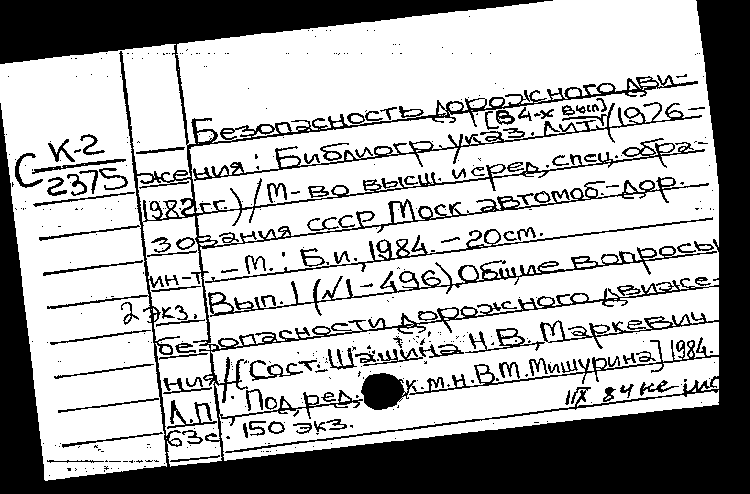 Безопасность дорожного дви-
[В 4-х вып]
С К-2
2375
жения: Библиогр. указ. лит. (1976-
1982гг.) / М-во высш. и сред. спец. обра-
зования СССР, Моск. автомоб.-дор.
ин-т. - М.: Б.и., 1984. - 20см.
2 экз. Вып. 1 (№1-496). Общие вопросы
безопасности дорожного движе-
ния / [Сост. Шашина Н.В., Маркевич
Л.П.; Под ред. к.м.н. В.М. Мишурина] 1984.
63с. 150 экз.